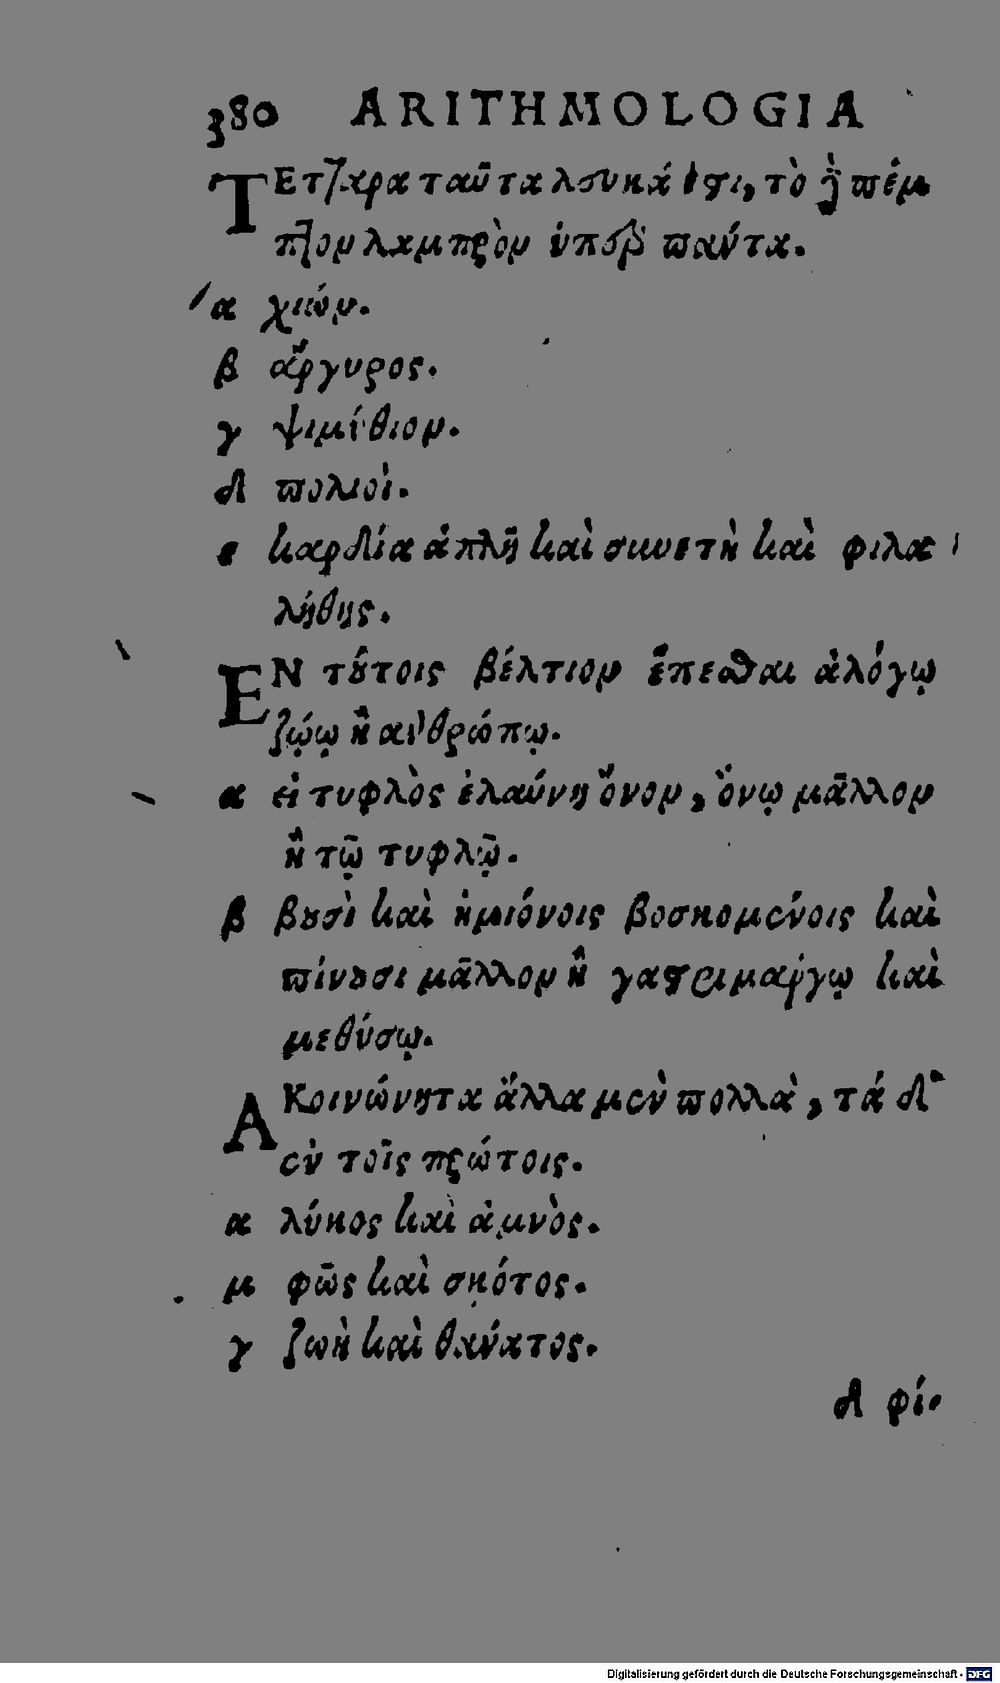 380 ARITHMOLOGIA
ΤΕτζαρα ταῦτα λσυκά ἐστι, τὸ ἢ πέμ
πῖον λαμπρὸν ὑπὲρ πάντα.
α χιών.
β ἄργυρος.
γ ψιμίθιον.
δ πολιοὶ.
ε καρδία ἁπλῆ καὶ συνετὴ καὶ φιλα
λήθης.
ΕΝ τούτοις βέλτιον ἕπεσθαι ἀλόγῳ
ζῴῳ ἢ ἀνθρώπῳ.
α εἰ τυφλὸς ἐλαύνῃ ὄνον, ὄνῳ μᾶλλον
ἢ τῷ τυφλῷ.
β βουσὶ καὶ ἡμιόνοις βοσκομένοις καὶ
πίνουσι μᾶλλον ἢ γαστριμάργῳ καὶ
μεθύσῳ.
ΑΚοινώνητα ἄλλα μὲν πολλὰ, τά δ'
ἐν τοῖς πρώτοις.
α λύκος καὶ ἀμνὸς.
μ φῶς καὶ σκότος.
γ ζωὴ καὶ θάνατος.
δ φί.
Digitalisierung gefördert durch die Deutsche Forschungsgemeinschaft - DFG